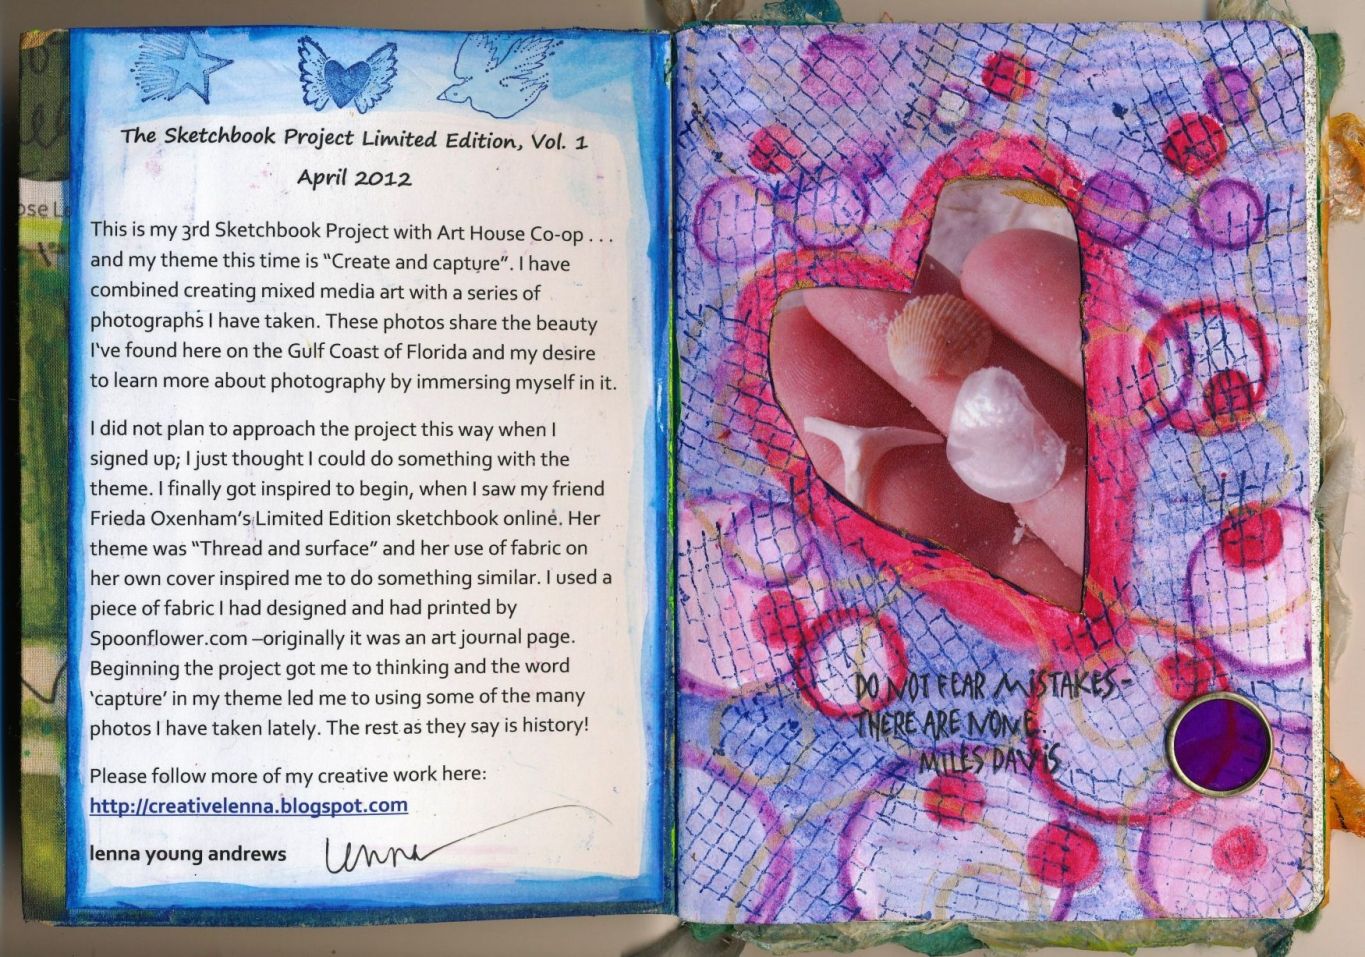 The Sketchbook Project Limited Edition, Vol. 1
April 2012
This is my 3rd Sketchbook Project with Art House Co-op . . .
and my theme this time is “Create and capture”. I have
combined creating mixed media art with a series of
photographs I have taken. These photos share the beauty
I've found here on the Gulf Coast of Florida and my desire
to learn more about photography by immersing myself in it.
I did not plan to approach the project this way when I
signed up; I just thought I could do something with the
theme. I finally got inspired to begin, when I saw my friend
Frieda Oxenham's Limited Edition sketchbook online. Her
theme was “Thread and surface” and her use of fabric on
her own cover inspired me to do something similar. I used a
piece of fabric I had designed and had printed by
Spoonflower.com –originally it was an art journal page.
Beginning the project got me to thinking and the word
‘capture’ in my theme led me to using some of the many
photos I have taken lately. The rest as they say is history!
Please follow more of my creative work here:
http://creativelenna.blogspot.com
lenna young andrews
Lenna
DO NOT FEAR MISTAKES -
THERE ARE NONE.
MILES DAVIS